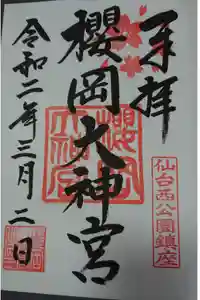 奉拝
櫻岡大神宮
仙台西公園鎮座
令和二年三月二日